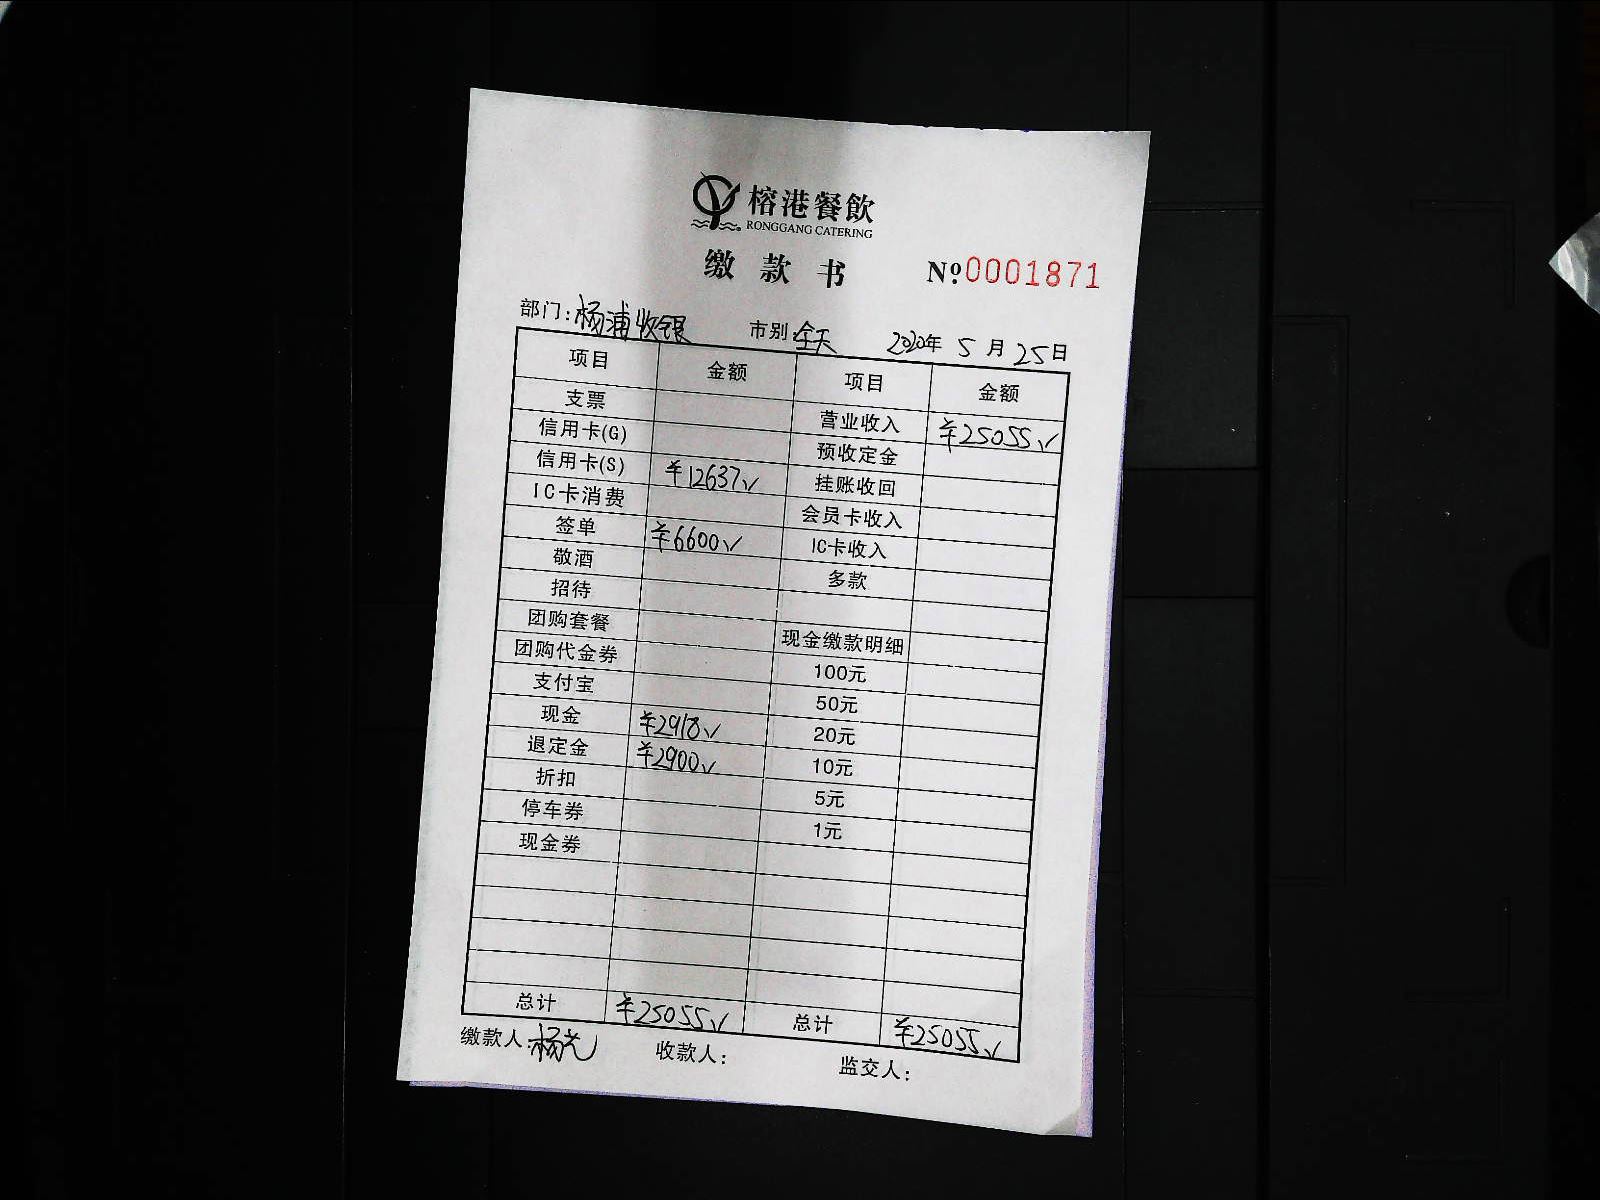 榕港餐飲
RONGGANG CATERING
缴款书 Nº:0001871
部门:杨浦收银 市别:全天 2020年 5 月 25日
项目 金额 项目 金额
支票 营业收入 ¥25055√
信用卡(G) 预收定金
信用卡(S) ¥12637√ 挂账收回
IC卡消费 会员卡收入
签单 ¥6600√ IC卡收入
敬酒 多款
招待
团购套餐 现金缴款明细
团购代金券 100元
支付宝 50元
现金 ¥2918√ 20元
退定金 ¥2900√ 10元
折扣 5元
停车券 1元
现金券
总计 ¥25055√ 总计 ¥25055√
缴款人:杨光 收款人: 监交人: